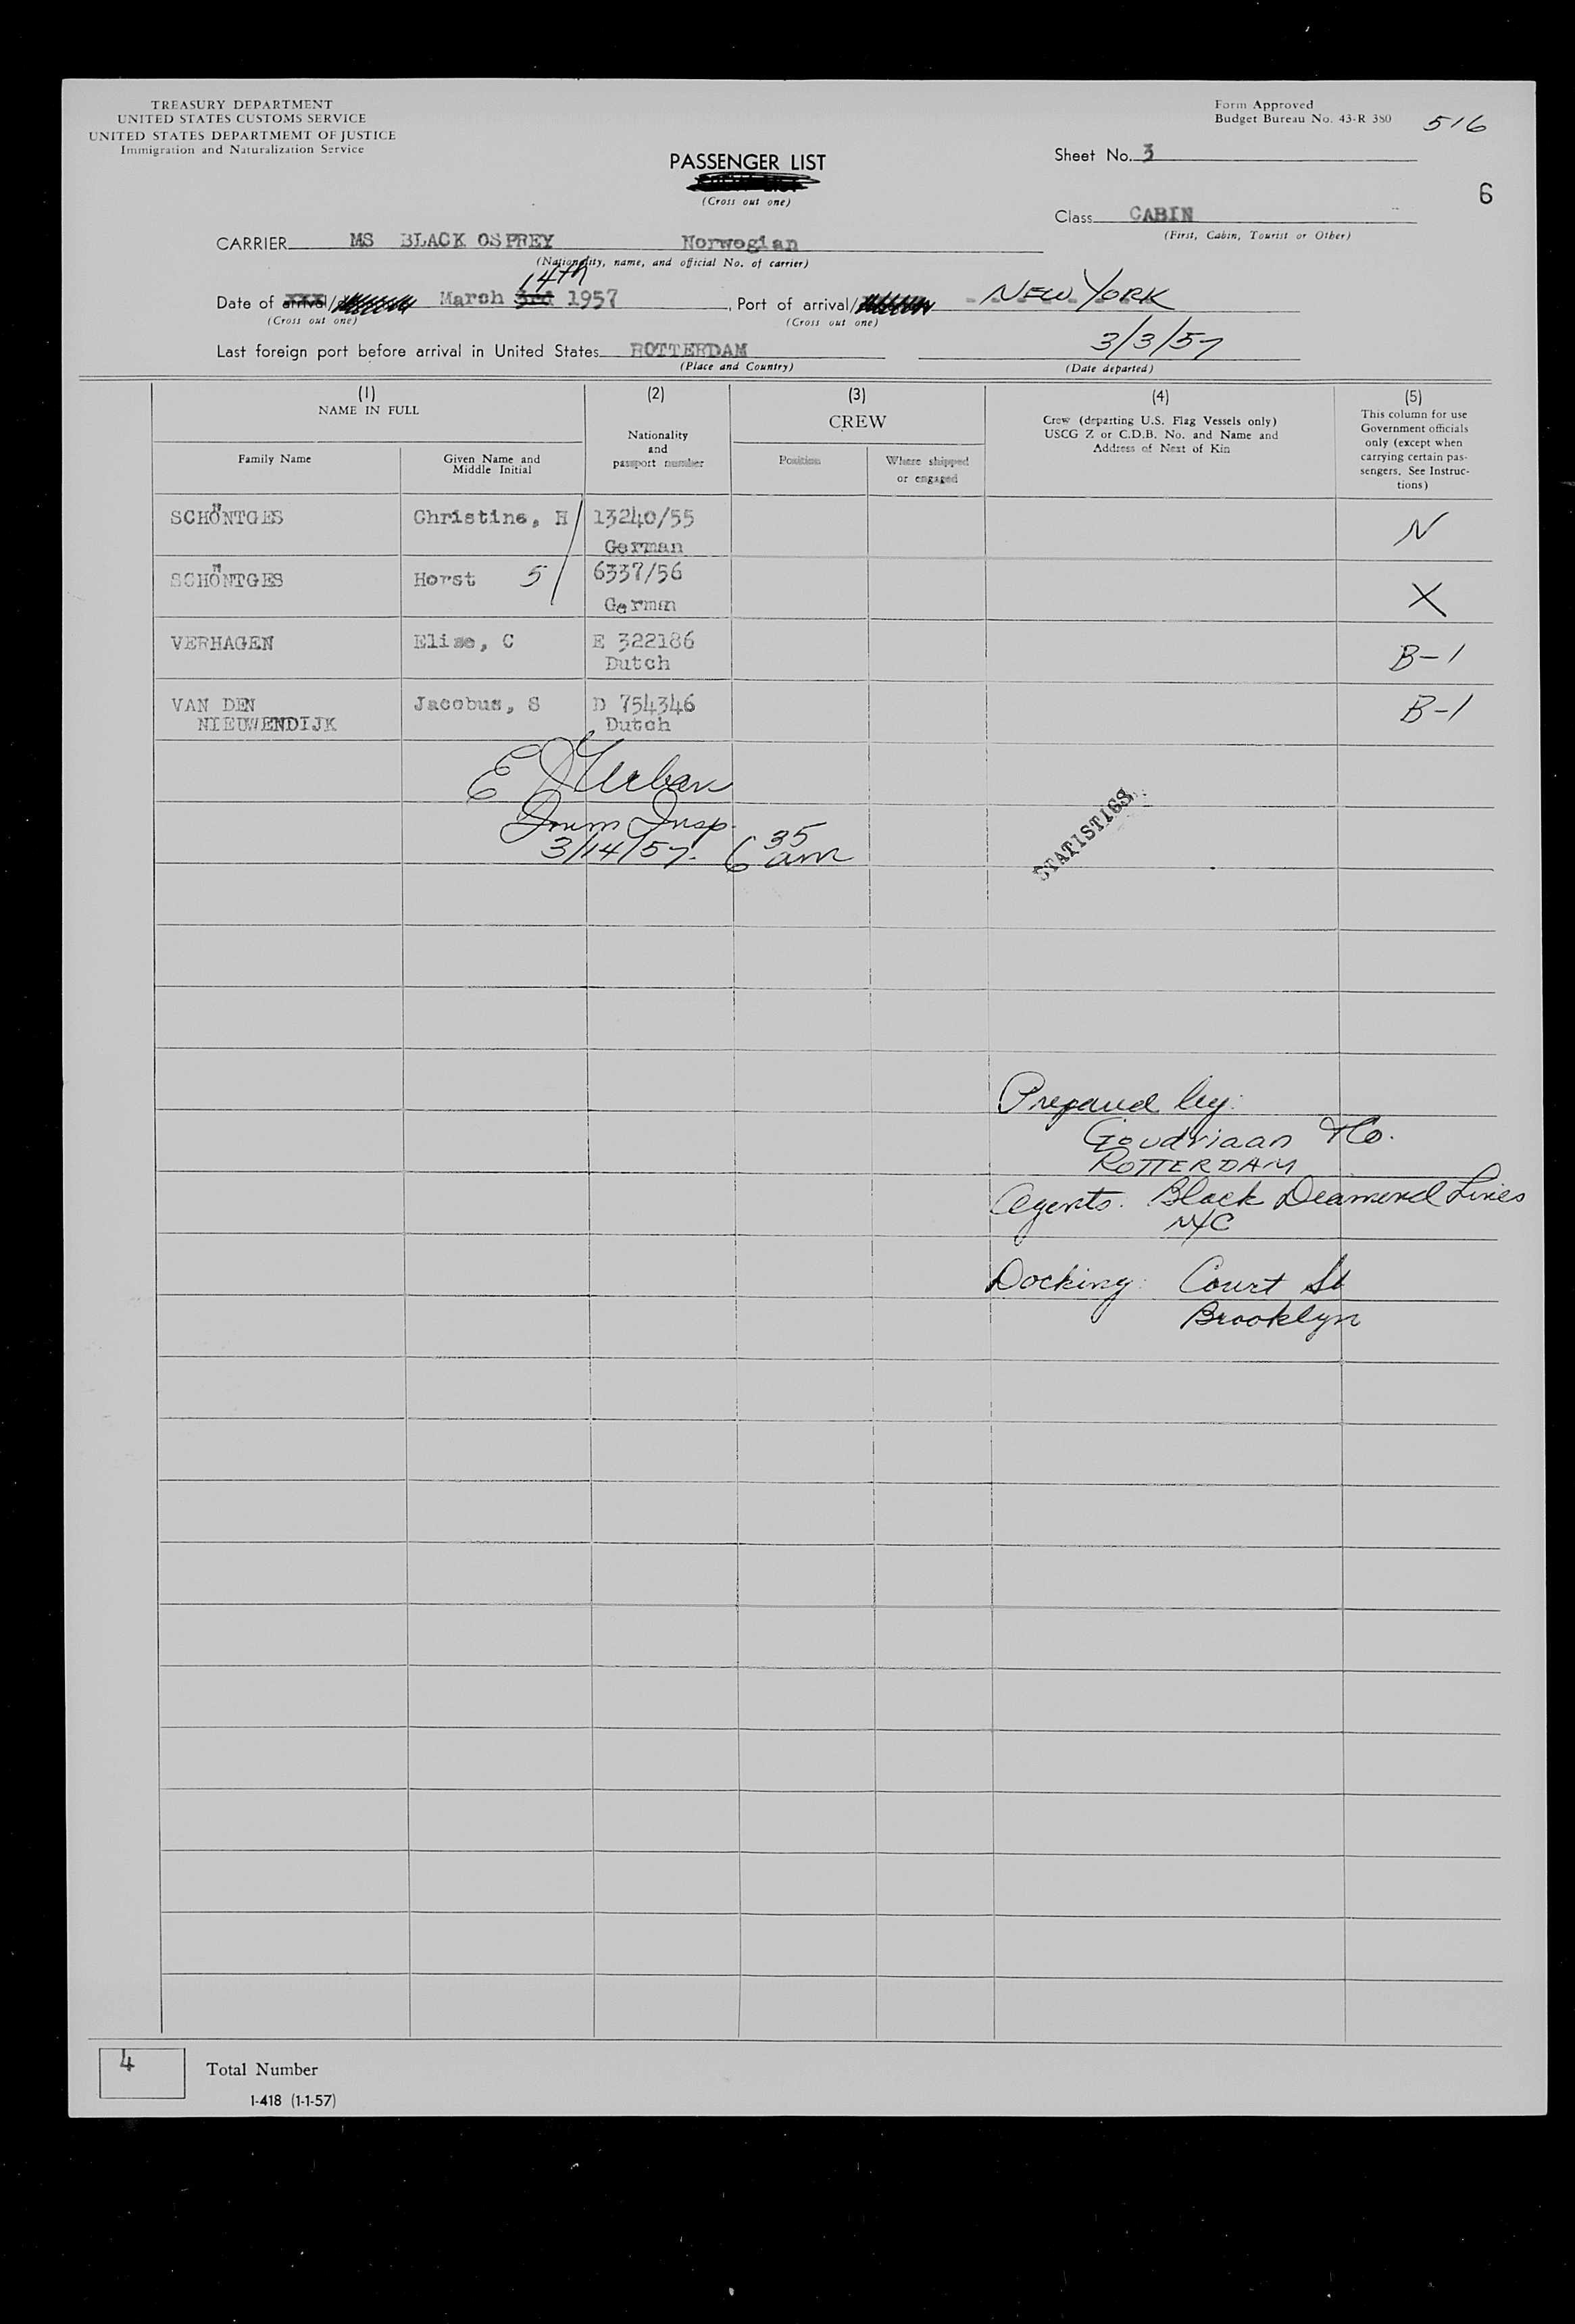 TREASURY DEPARTMENT
UNITED STATES CUSTOMS SERVICE
UNITED STATES DEPARTMEMT OF JUSTICE
Immigration and Naturalization Service
Form Approved
Budget Bureau No. 43-R 380
516
PASSENGER LIST
(Cross out one)
Sheet No. 3
6
Class CABIN
(First, Cabin, Tourist or Other)
CARRIER MS BLACK OSPREY Norwegian
(Nationality, name, and official No. of carrier)
14th
Date of arrival/ March 3rd 1957, Port of arrival/ NEW YORK
(Cross out one) (Cross out one)
Last foreign port before arrival in United States ROTTERDAM 3/3/57
(Place and Country) (Date departed)
(1) NAME IN FULL
Family Name
Given Name and Middle Initial
(2)
Nationality and passport number
(3)
CREW
Position
Where shipped or engaged
(4)
Crew (departing U.S. Flag Vessels only)
USCG Z or C.D.B. No. and Name and
Address of Next of Kin
(5)
This column for use
Government officials
only (except when
carrying certain pas-
sengers. See Instruc-
tions)
SCHÖNTGES Christine, H 13240/55 N
German
SCHÖNTGES Horst 5 6337/56 X
German
VERHAGEN Elise, C E 322186 B-1
Dutch
VAN DEN Jacobus, S D 754346 B-1
NIEUWENDIJK Dutch
E J Urban
Imm Insp.
3/14/57. 6 35 am
STATISTICS
Prepared by:
Goudriaan & Co.
ROTTERDAM
Agents: Black Diamond Lines
NYC
Docking: Court St
Brooklyn
4 Total Number
1-418 (1-1-57)